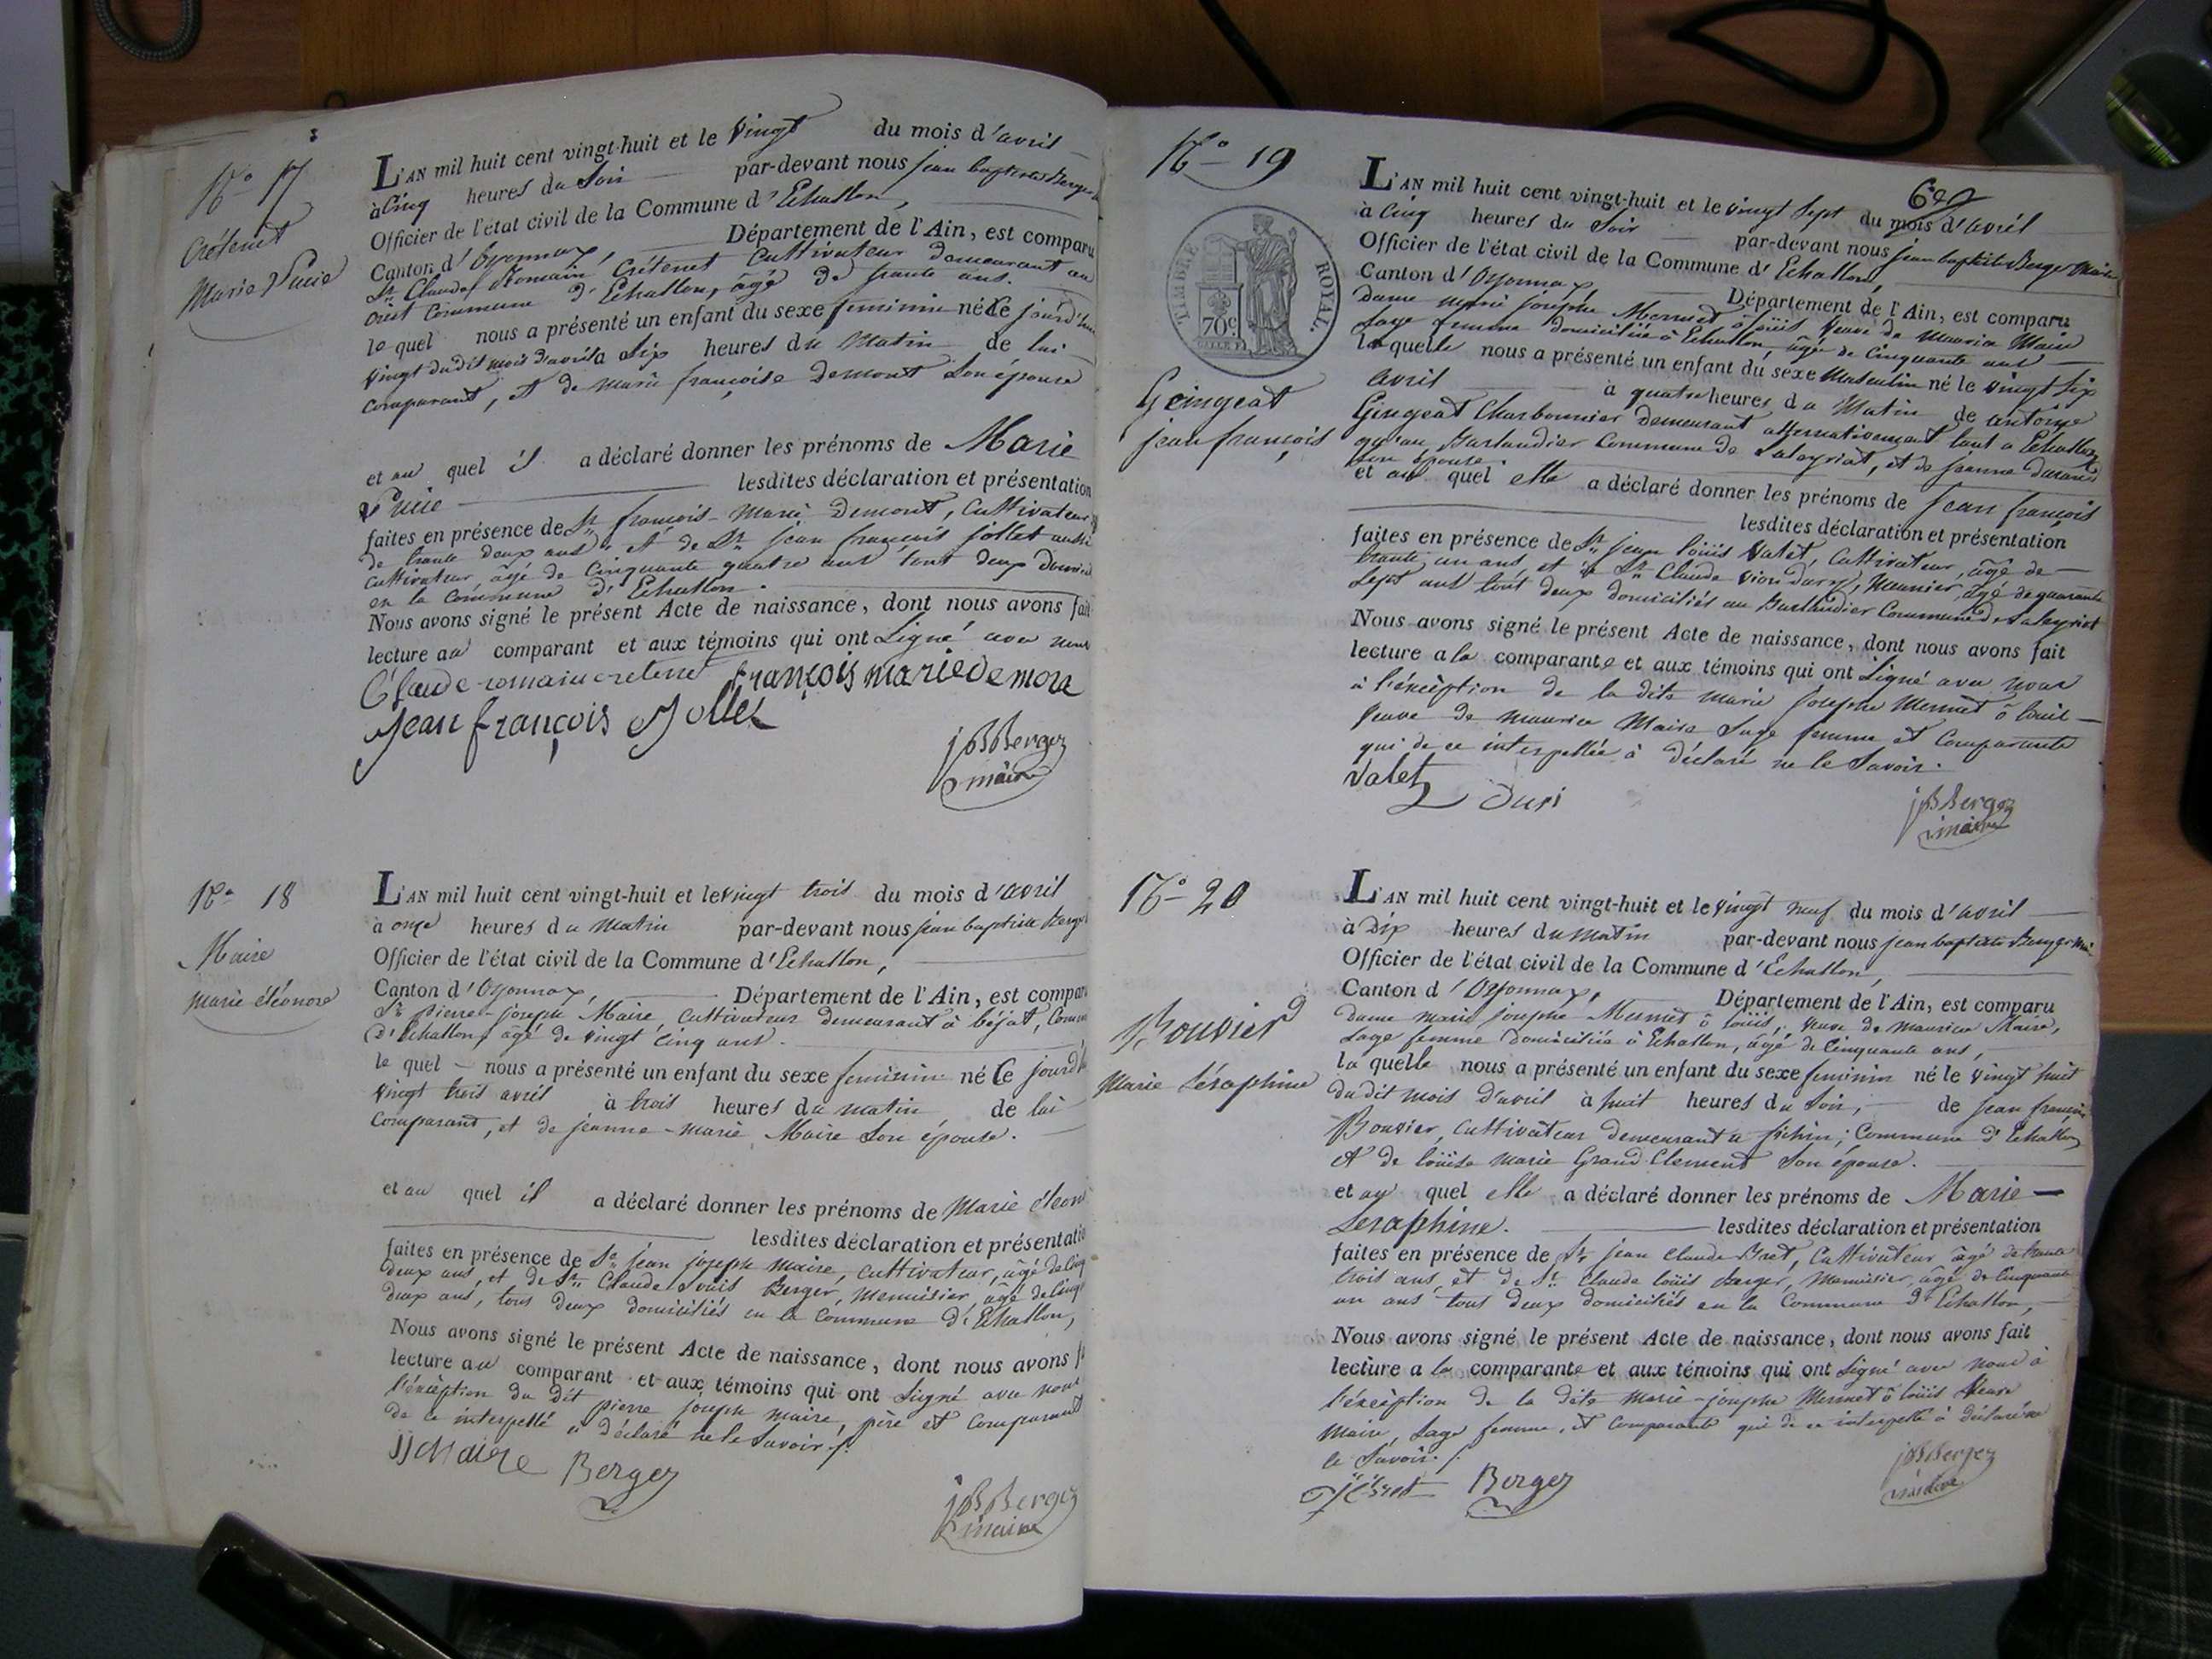 N.º 17
Crétenet
Marie Lucie
L'AN mil huit cent vingt-huit et le vingt du mois d'avril
à cinq heures du soir par-devant nous jean baptiste Berger
Officier de l'état civil de la Commune d'Echallon,
Canton d'Oyonnax, Département de l'Ain, est comparu
Sr. Claude Romain Crétenet cultivateur demeurant au
crêt commune d'Echallon, âgé de trente ans.
le quel nous a présenté un enfant du sexe feminin né Ce jourd'hui
vingt du dit mois d'avril à six heures du matin de lui
comparant, et de marie françoise demont son épouse
et au quel il a déclaré donner les prénoms de Marie
Lucie lesdites déclaration et présentation
faites en présence de Sr. françois-Marie demont, cultivateur
de trente deux ans, et de Sr. jean françois jollet aussi
cultivateur, âgé de cinquante quatre ans tout deux
en la commune d'Echallon.
Nous avons signé le présent Acte de naissance, dont nous avons fait
lecture au comparant et aux témoins qui ont signé avec nous
Claude romain cretenet françois marie demora
Jean françois Jollet
jBBerger
maire
N.º 18
Maire
marie éléonore
L'AN mil huit cent vingt-huit et le vingt trois du mois d'avril
à onze heures du matin par-devant nous jean baptiste Berger
Officier de l'état civil de la Commune d'Echallon,
Canton d'Oyonnax, Département de l'Ain, est comparu
Sr. pierre-joseph Maire, cultivateur demeurant à béjat, Comm
d'Echallon, âgé de vingt cinq ans.
le quel nous a présenté un enfant du sexe feminin né Ce jourd'h
vingt trois avril à trois heures du matin de lui
comparant, et de jeanne-marie Maire son épouse.
et au quel il a déclaré donner les prénoms de Marie éleon
lesdites déclaration et présentatio
faites en présence de Sr. jean joseph maire, cultivateur, âgé de cinq
deux ans, et de Sr. Claude Louis Berger, menuisier, âgé de cinq
deux ans, tous deux domiciliés en la commune d'Echallon,
Nous avons signé le présent Acte de naissance, dont nous avons f
lecture au comparant et aux témoins qui ont signé avec nous
l'éxception du dit pierre joseph maire, père et comparant
de ce interpellé a déclaré ne le savoir.
JJ Maire Berger
jBBerger
maire
N.º 19
TIMBRE ROYAL.
70c
Geingeat
jean françois
L'AN mil huit cent vingt-huit et le vingt sept du mois d'avril
à cinq heures du soir par-devant nous jean baptiste Berger Maire
Officier de l'état civil de la Commune d'Echallon,
Canton d'Oyonnax, Département de l'Ain, est comparu
dame marie josephe Mermet ô loüis, veuve de maurice Maire
sage femme domiciliée à Echallon, âgée de cinquante ans
la quelle nous a présenté un enfant du sexe masculin né le vingt six
avril à quatre heures du matin de antoine
Gingeat charbonnier demeurant alternativement tant a Echallon
qu'au Burlandier commune de Laleyriat, et de jeanne durand
son épouse.
et au quel elle a déclaré donner les prénoms de jean françois
lesdites déclaration et présentation
faites en présence de Sr. jean loüis Valet, cultivateur, âgé de
trente un ans, et de Sr. Claude vion dury, Meunier, âgé de quarante
sept ans tout deux domiciliés au Burlandier Commune de Laleyriat
Nous avons signé le présent Acte de naissance, dont nous avons fait
lecture a la comparante et aux témoins qui ont signé avec nous
à l'éxception de la dite marie josephe Mermet ô louis
veuve de maurice Maire sage femme et comparante
qui de ce interpellée à déclaré ne le savoir.
Valet Duri
jBBerger
maire
N.º 20
Bouvier
Marie Séraphine
L'AN mil huit cent vingt-huit et le vingt neuf du mois d'avril
à dix heures du matin par-devant nous jean baptiste Berger mai
Officier de l'état civil de la Commune d'Echallon,
Canton d'Oyonnax, Département de l'Ain, est comparu
dame marie josephe Mermet ô loüis, veuve de maurice Maire,
sage femme domiciliée à Echallon, âgé de cinquante ans,
la quelle nous a présenté un enfant du sexe feminin né le vingt huit
du dit mois d'avril à huit heures du soir, de jean françois
Bouvier, cultivateur demeurant a commune d'Echallon
et de loüise marie Grand Clement son épouse.
et au quel elle a déclaré donner les prénoms de Marie
Seraphine. lesdites déclaration et présentation
faites en présence de Sr. jean claude Bret, cultivateur âgé de trente
trois ans, et de Sr. claude loüis Berger, Menuisier, âgé de cinquante
un ans tous deux domiciliés en la commune d'Echallon,
Nous avons signé le présent Acte de naissance, dont nous avons fait
lecture a la comparante et aux témoins qui ont signé avec nous à
l'éxception de la dite marie-josephe Mermet ô loüis veuve
maire, sage femme, et comparante qui de ce interpellé à déclaré ne
le savoir.
Berger
jBBerger
maire